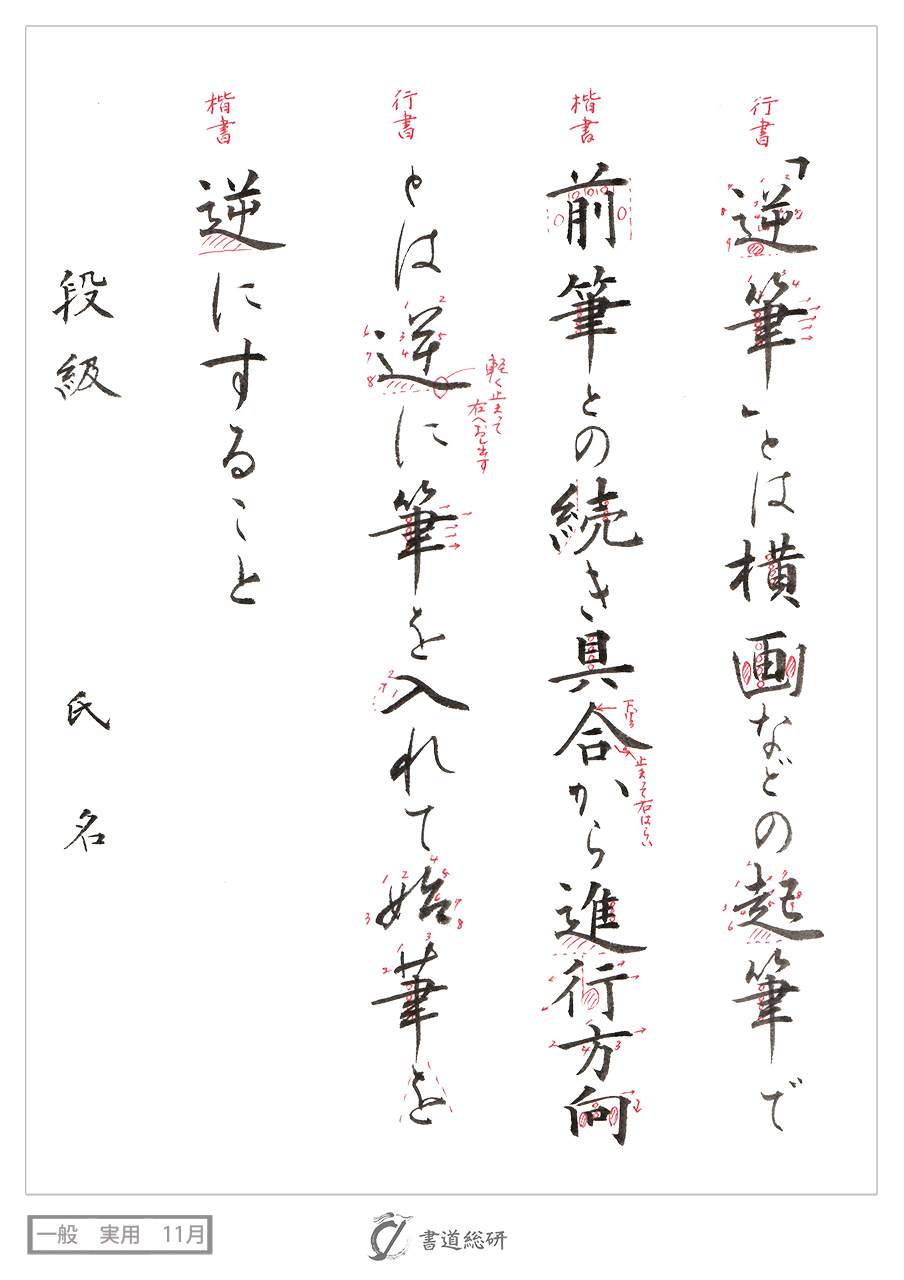 行書
「逆筆」とは横画などの起筆で
楷書
前筆との続き具合から進行方向
行書
とは逆に筆を入れて始筆を
楷書
逆にすること
段級 氏名
軽く止まって
右へおし出す
止まって右はらい
一般 実用 11月
書道総研